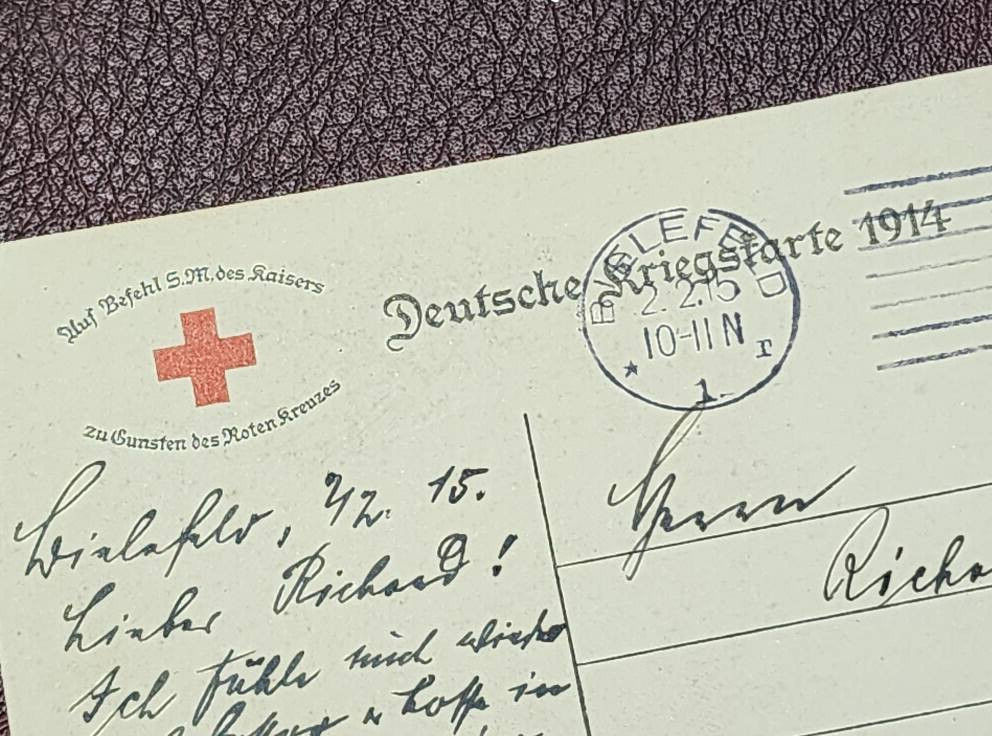 Auf Befehl S.M. des Kaisers
zu Gunsten des Roten Kreuzes
Deutsche Kriegskarte 1914
BIELEFELD
2.2.15
10-11 N
* 1. r
Bielefeld, 2/2. 15.
Lieber Richard!
Ich fühle mich wieder
besser u hoffe in
Herrn
Richa